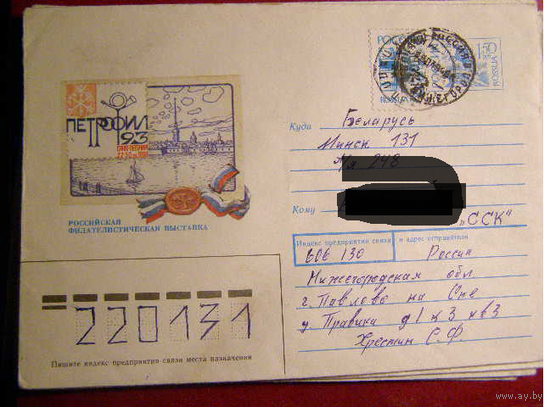 ПЕТРОФИЛ
93
РОССИЙСКАЯ
ФИЛАТЕЛИСТИЧЕСКАЯ ВЫСТАВКА
РОССИЯ
150
Куда Беларусь
Минск 131
А/я 248
Кому
„ССК"
Индекс предприятия связи и адрес отправителя
606130 Россия
Нижегородская обл
г. Павлово на Оке
у. Правики д 1 к 3 кв 3
Хрестин С.Ф.
220131
Пишите индекс предприятия связи места назначения
www.ay.by